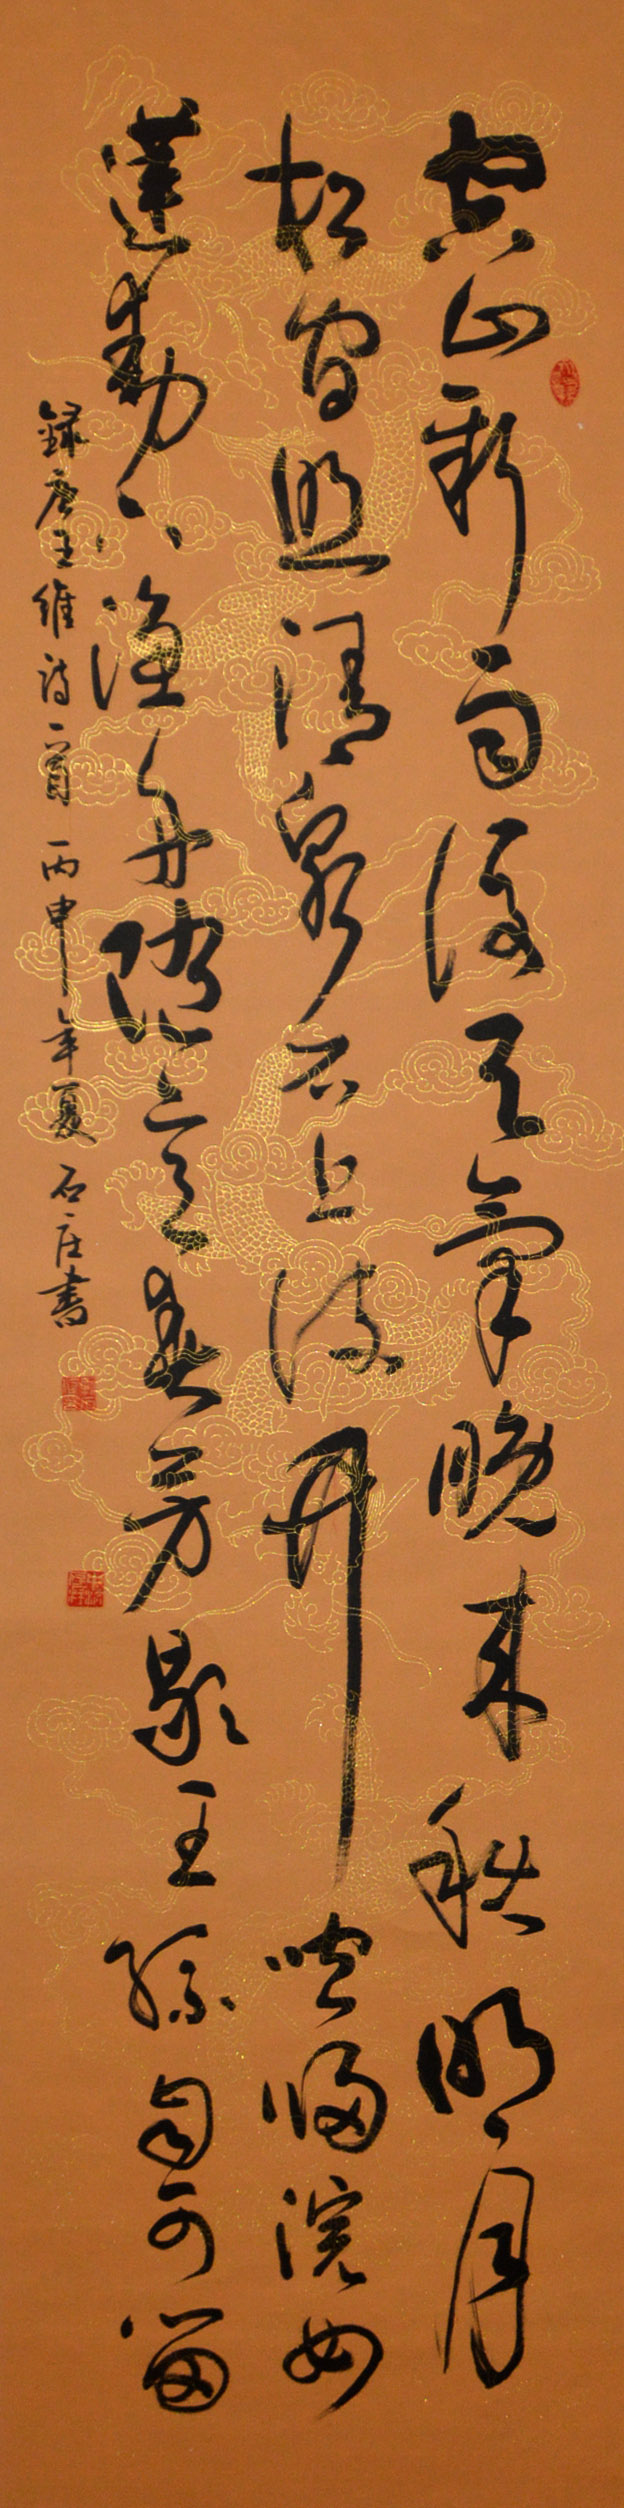 空山新雨後天氣晚來秋明月
松間照清泉石上流竹喧歸浣女
蓮動下漁舟隨意春芳歇王孫自可留
錄唐王維詩一首丙申年夏石庄書